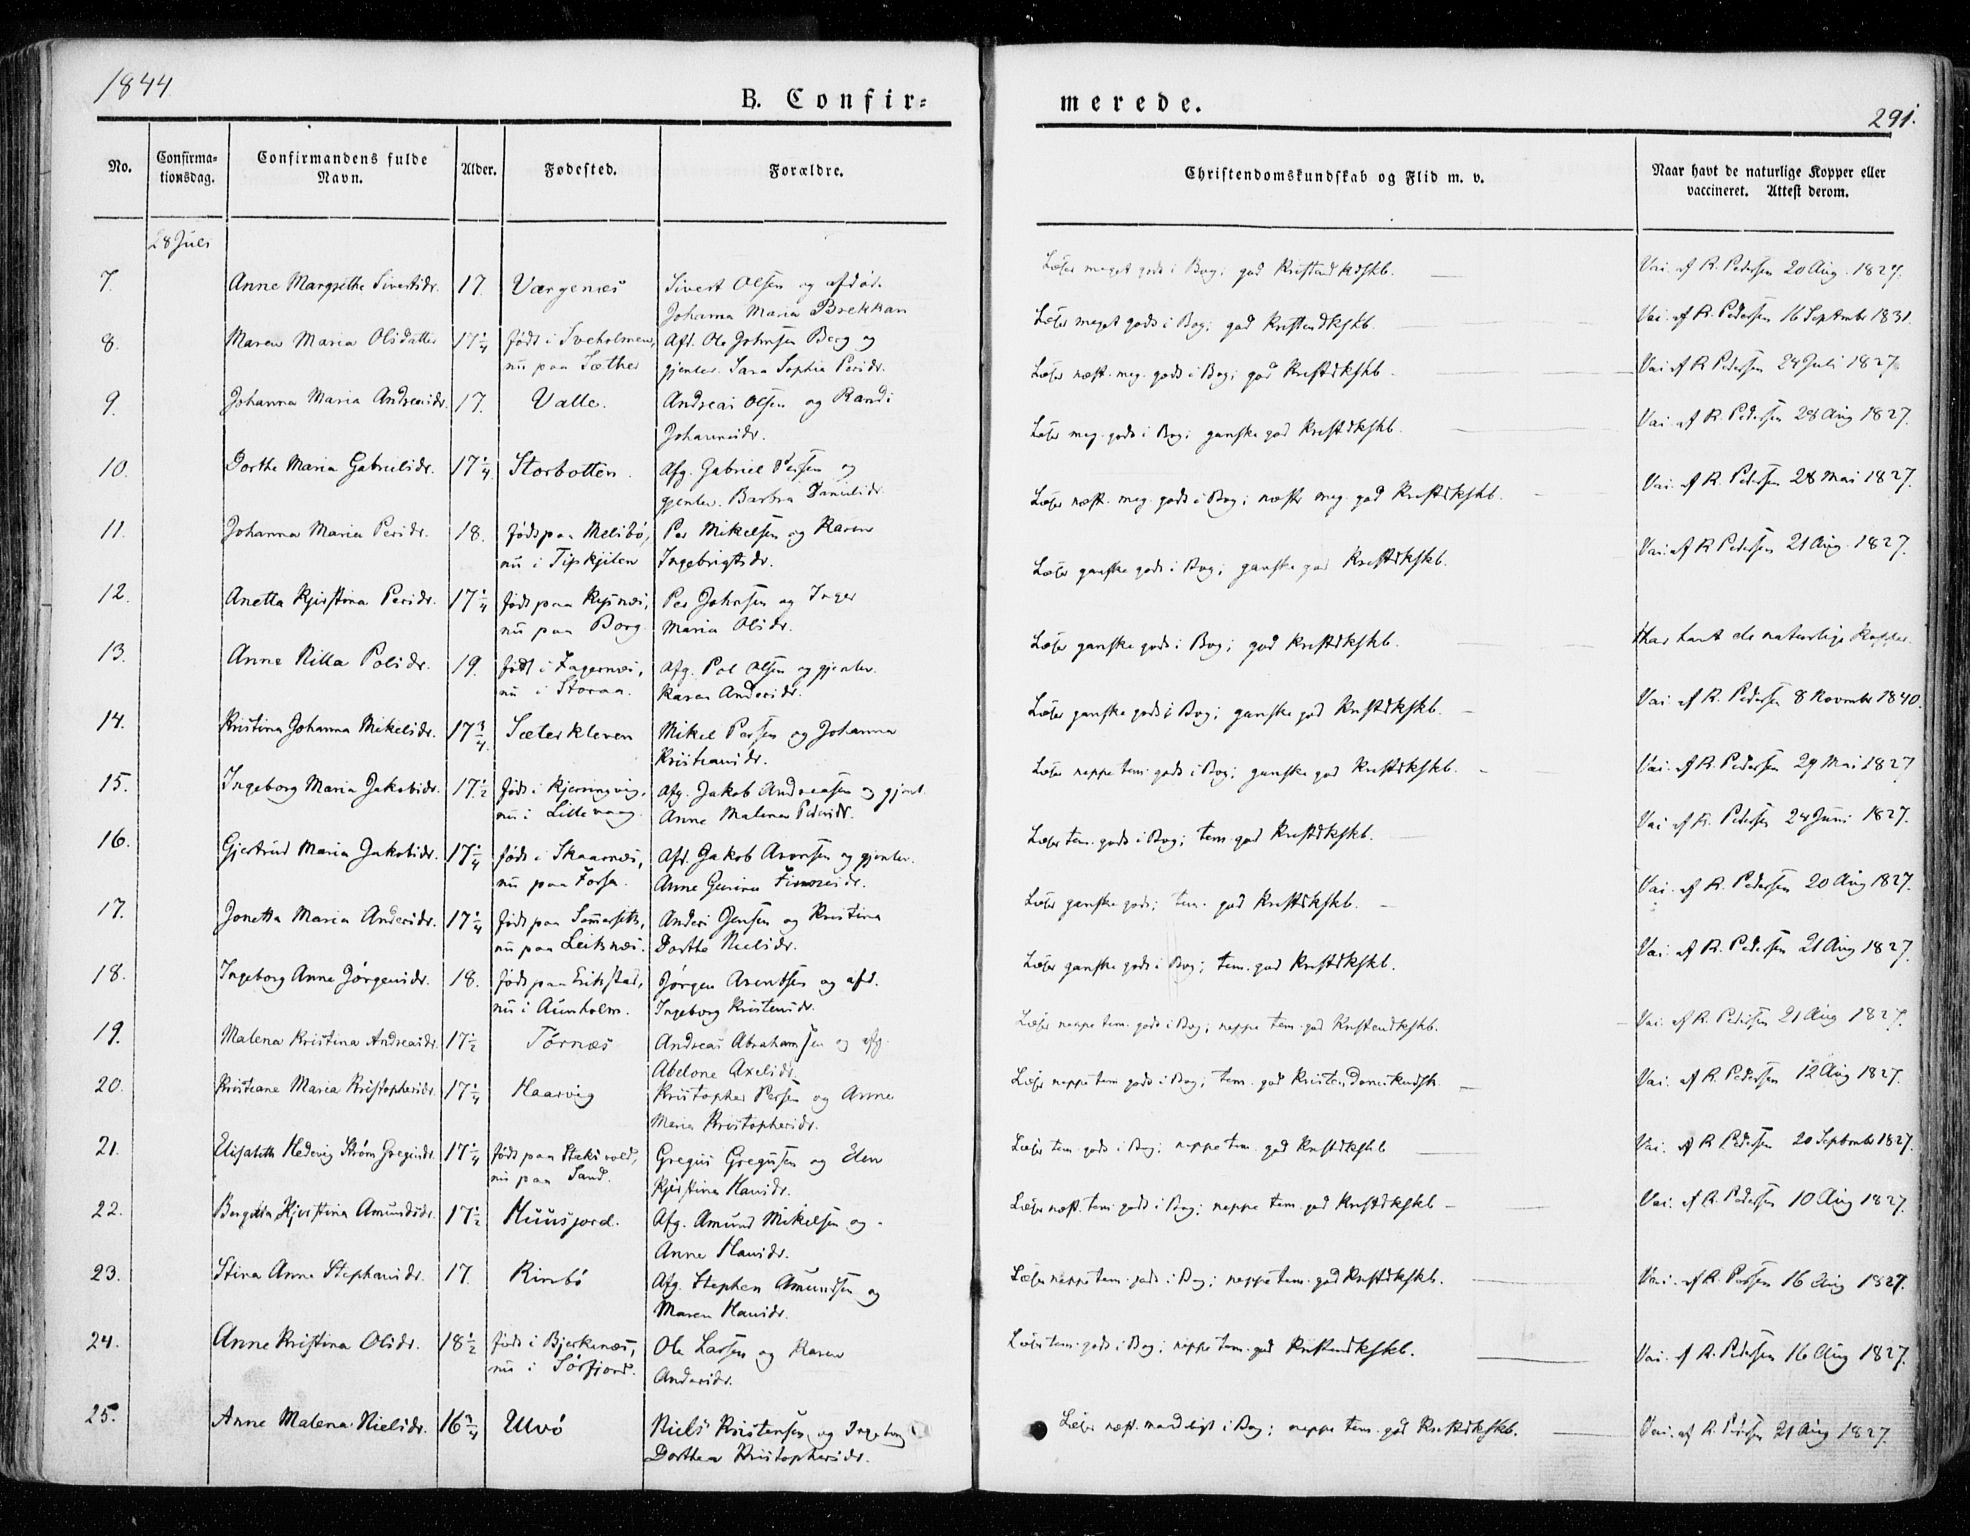 1844
B. Confir=
merede.
291.
No.
Confirma-
tionsdag.
Confirmandens fulde
Navn.
Alder.
Fødested.
Forældre.
Christendomskundskab og Flid m. v.
Naar havt de naturlige Kopper eller
vaccineret. Attest derom.
28 Juli
7. Anne Margrethe Sivertsdr. 17. Værgenæs Sivert Olsen og afdød.
Johanna Maria Brekkan
Læser meget godt i Bog; god Kristendkdskb. Vai. af R. Pedersen 20 Aug. 1827.
8. Maren Maria Olsdatter 17 1/4 født i Sveholmen, Afd. Ole Johnsen Berg og
nu paa Sæther gjenlev. Sara Sophia Persdr.
Læser meget godt i Bog; god Kristendkskb. Vai. af R. Pedersen 16 September 1831.
9. Johanna Maria Andreasdr. 17. Valle. Andreas Olsen og Randi
Johannesdr.
Læser næst. meg. godt i Bog; god Kristdkskb. Vai. af R Pedersen 24 Juli 1827
10. Dorthe Maria Gabrielsdr. 17 1/4 Storbotten. Afg. Gabriel Persen og
gjenlev. Barbra Danielsdr.
Læser meg. godt i Bog; ganske god Kristdkskb. Vai. af R. Pedersen 28 Aug 1827.
11. Johanna Maria Persdr. 18. født paa Melsbø, Per Mikelsen og Karen
nu i Tipkjilen Ingebrigtsdr.
Læser næst. meg. godt i Bog; næsten meg. god Kristdkskb. Vai. af R. Pedersen 28 Mai 1827.
12. Anetta Kjirstina Persdr. 17 1/4 født paa Rysnæs, Per Johnsen og Inger
nu paa Borg. Maria Olsdr.
Læser ganske godt i Bog; ganske god Kristdkskb. Vai. af R Pedersen 21 Aug. 1827.
13. Anne Nilla Polsdr. 19. født i Fagernæs, Afg. Pol Olsen og gjenlev.
nu i Storaa. Karen Andersdr.
Læser ganske godt i Bog; god Kristdkskb. Har havt de naturlige Kopper.
14. Kristina Johanna Mikelsdr. 17 3/4. Sæterkleven Mikel Persen og Johanna
Kristiansdr.
Læser ganske godt i Bog; ganske god Kristdkskb. Vai. af R. Pedersen 8 November 1840.
15. Ingeborg Maria Jakobsdr. 17 1/2 født i Kjerringvig, Afg. Jakob Andreasen og gjenl.
nu i Lillevaag. Anne Malena Pedersdr.
Læser neppe tem. godt i Bog; ganske god Kristdkskb. Vai. af R. Pedersen 29 Mai 1827
16. Gjertrud Maria Jakobsdr. 17 1/4 født i Skaarnæs, Afd. Jakob Aronsen og gjenlev.
nu paa Forsa. Anne Gurina
Læser tem. godt i Bog; tem. god Kristdkskb. Vai af R. Pedersen 24 Juni 1827.
17. Jonetta Maria Andersdr. 17 1/4 født paa Sommerseth, Anders Jensen og Kristina
nu paa Leiknæs. Dorthe Nielsdr.
Læser ganske godt; tem. god Kristdkskb. Vai. af R. Pedersen 20 Aug 1827.
18. Ingeborg Anne Jørgensdr. 18. født paa Erikstad, Jørgen Arentsen og afd.
nu i Aunholm. Ingeborg Kristensdr.
Læser ganske godt i Bog; tem. god Kristdkskb. Vai. af R. Pedersen 21 Aug 1827.
19. Malena Kristina Andreasdr. 17 1/2 Tørnæs Andreas Abrahamsen og afg.
Abelone Axelsdr.
Læser neppe tem. godt i Bog; neppe tem. god Kristendkskb. Vai. af R. Pedersen 21 Aug 1827.
20. Kristiane Maria Kristophersdr. 17 1/4 Haarvig Kristopher Persen og Anne
Maria Kristophersdr.
Læser neppe tem godt i Bog; tem. god Kristendomskundsk. Vai. af R. Pedersen 12 Aug 1827.
21. Elisabeth Hedevig Strøm Gregusdr. 17 1/4 født paa Staksvold, Gregus Gregusen og Elen
nu paa Sand. Kjirstina Hansdr.
Læser tem. godt i Bog; neppe tem. god Kristdkskb Vai. af R Pedersen 20 September 1827.
22. Bergitta Kjirstina Amundsdr. 17 1/2 Huusjord. Afg. Amund Mikelsen og
Anne Hansdr.
Læser næst. tem. godt i Bog; neppe tem. god Kristdkskb Vai. af R. Pedersen 10 Aug 1827.
23. Stina Anne Stephansdr. 17. Rinbø Afg. Stephen Amundsen og
Maren Hansdr.
Læser neppe tem. godt i Bog; neppe tem. god Kristdkskb. Vai. af R. Persen 16 Aug 1827.
24. Anne Kristina Olsdr. 18 1/2 født i Bjerkenæs, Ole Larsen og Karen
nu i Sørfjord. Andersdr.
Læser tem. godt i Bog; neppe tem. god Kristendkskb. Vai. af R. Pedersen 16 Aug 1827.
25. Anne Malena Nielsdr. 16 3/4 Ulvø Niels Kristensen og Ingeborg
Dorthea Kristophersdr.
Læser næst. maadeligt i Bog; neppe tem. god Kristdkskb. Vai. af R. Pedersen 21 Aug 1827.